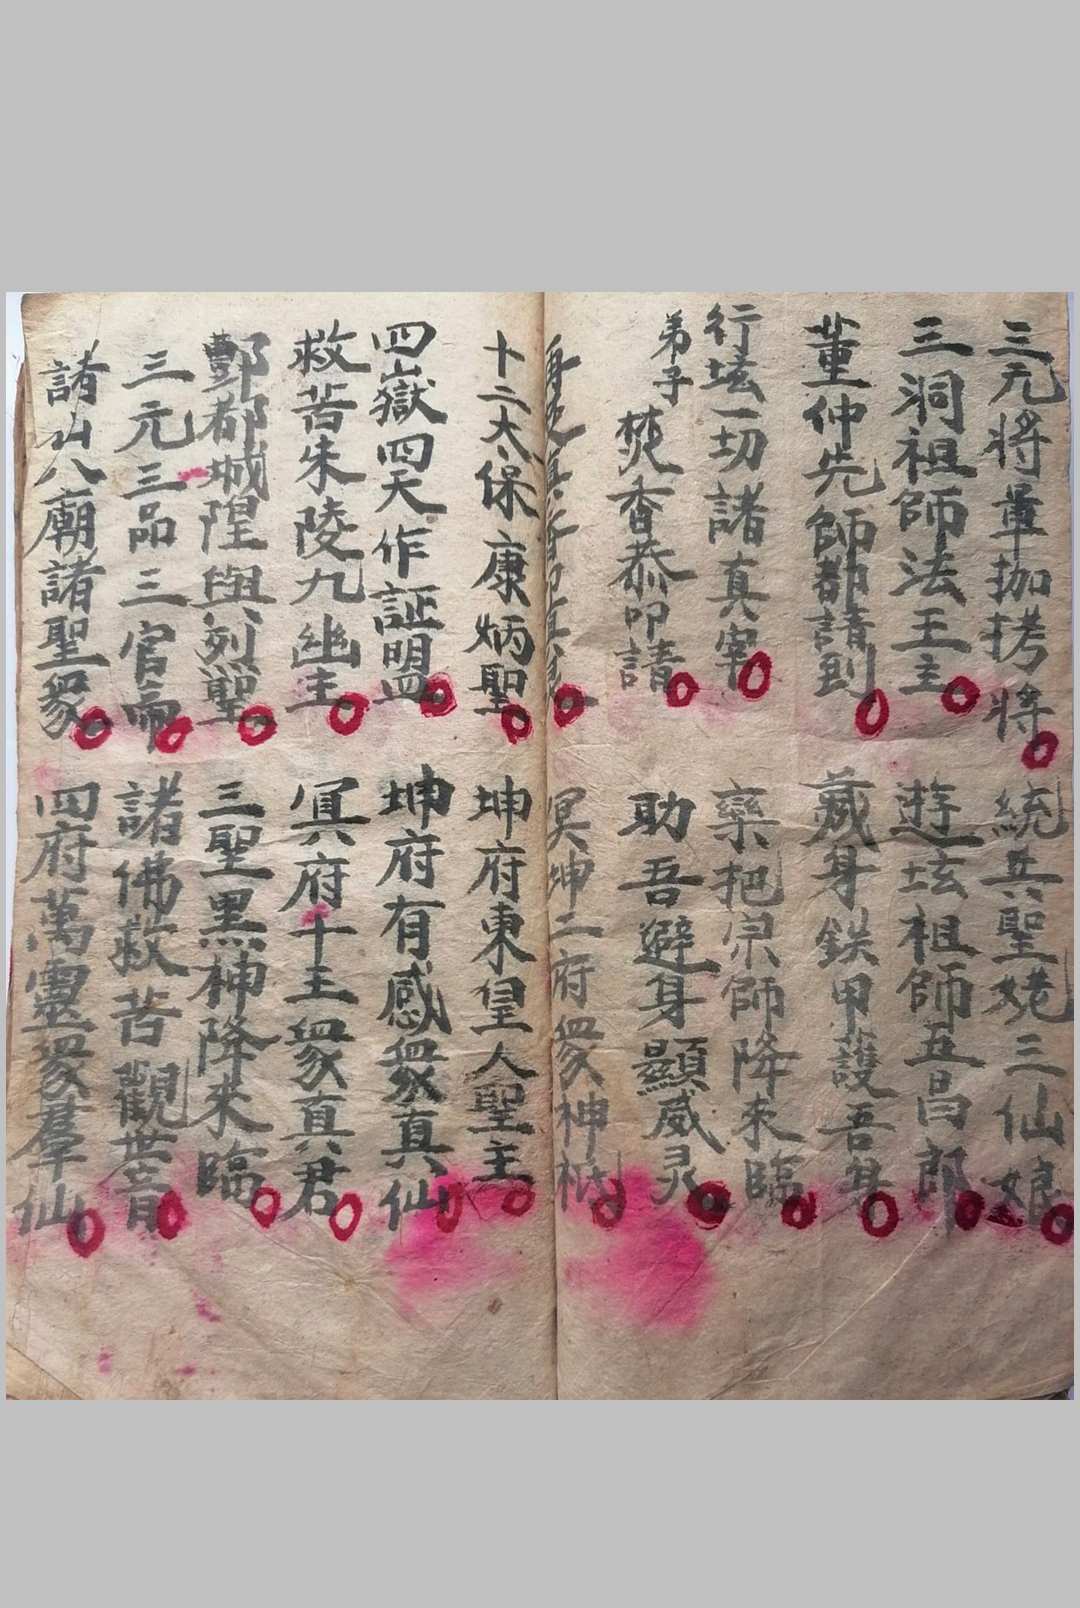 三元將軍枷拷將
統兵聖姥三仙娘
三洞祖師法王主
遊垓祖師五昌郎
董仲先師都請到
藏身鉄甲護吾身
行垓一切諸真宰
欒把宗師降來臨
弟子焚香恭叩請
助吾避身顯威灵
冥坤二府眾神祗
十二太保康炳聖
坤府東皇人聖主
四嶽四天作証盟
坤府有感眾真仙
救苦朱陵九幽主
冥府十王眾真君
酆都城隍與列聖
三聖黑神降來臨
三元三品三官帝
諸佛救苦觀世音
諸山八廟諸聖眾
四府萬靈眾羣仙